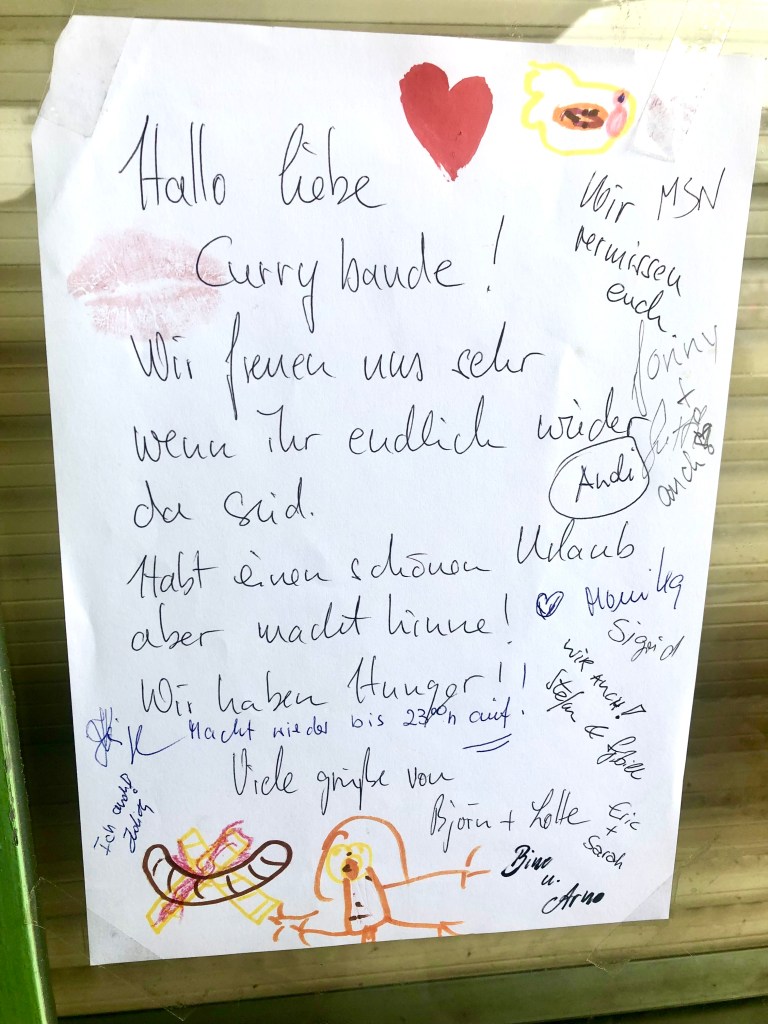 Hallo liebe
Currybande!
Wir freuen uns sehr
wenn ihr endlich wieder
da seid.
Habt einen schönen Urlaub
aber macht hinne!
Wir haben Hunger!!
Macht wieder bis 23⁰⁰h auf!
Viele grüße von
Björn + Lotte
Bine
u.
Arno
Wir MSN
vermissen
euch.
Jonny
+
auch
Andi
Monika
Sigrid
Wir auch!
Stefan &
Eric
+
Sarah
Ich auch!